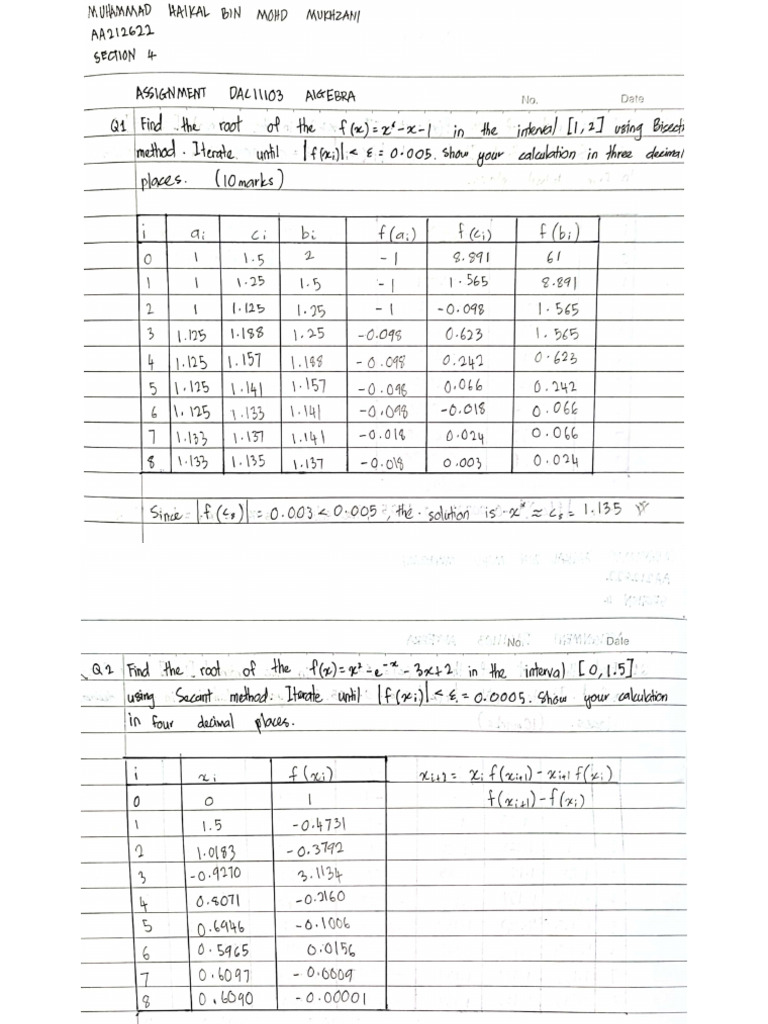 MUHAMMAD HAIKAL BIN MOHD MUKHZANI
AA212622
SECTION 4
ASSIGNMENT DAC11103 ALGEBRA No. Date
Q1 Find the root of the f(x) = x⁶ - x - 1 in the interval [1, 2] using Bisecti
method. Iterate until |f(xi)| < ε = 0.005. Show your calculation in three decimal
places. (10 marks)
i ai ci bi f(ai) f(ci) f(bi)
0 1 1.5 2 -1 8.891 61
1 1 1.25 1.5 -1 1.565 8.891
2 1 1.125 1.25 -1 -0.098 1.565
3 1.125 1.188 1.25 -0.098 0.623 1.565
4 1.125 1.157 1.188 -0.098 0.242 0.623
5 1.125 1.141 1.157 -0.098 0.066 0.242
6 1.125 1.133 1.141 -0.098 -0.018 0.066
7 1.133 1.137 1.141 -0.018 0.024 0.066
8 1.133 1.135 1.137 -0.018 0.003 0.024
Since |f(c₈)| = 0.003 < 0.005, the solution is x* ≈ c₈ = 1.135
No. Date
Q2 Find the root of the f(x) = x² - e⁻ˣ - 3x + 2 in the interval [0, 1.5]
using Secant method. Iterate until |f(xi)| < ε = 0.0005. Show your calculation
in four decimal places.
i xi f(xi) xi+2 = xi f(xi+1) - xi+1 f(xi)
f(xi+1) - f(xi)
0 0 1
1 1.5 -0.4731
2 1.0183 -0.3792
3 -0.9270 3.1134
4 0.8071 -0.2160
5 0.6946 -0.1006
6 0.5965 0.0156
7 0.6097 -0.0009
8 0.6090 -0.00001